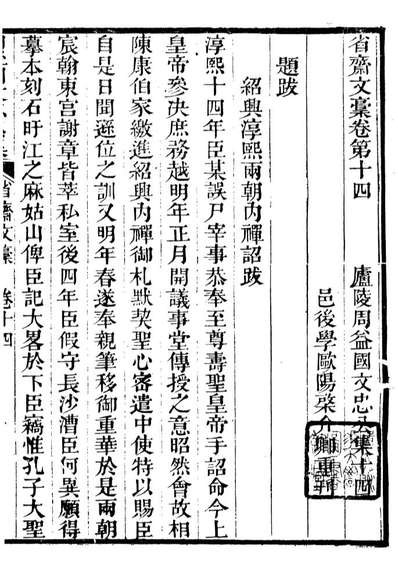 省齋文稾卷第十四　廬陵周益國文忠公集十四
邑後學歐陽棨介卿重
題跋
紹興淳熙兩朝内禪詔跋
淳熙十四年臣某誤尸宰事恭奉至尊壽聖皇帝手詔命今上
皇帝參决庶務越明年正月開議事堂傳授之意昭然會故相
陳康伯家繳進紹興内禪御札默契聖心密遣中使特以賜臣
自是日聞遜位之訓又明年春遂奉親筆移御重華於是兩朝
宸翰東宮謝章皆萃私室後四年臣假守長沙漕臣何異願得
摹本刻石旴江之麻姑山俾臣記大畧於下臣竊惟孔子大聖
省齋文稾　卷十四